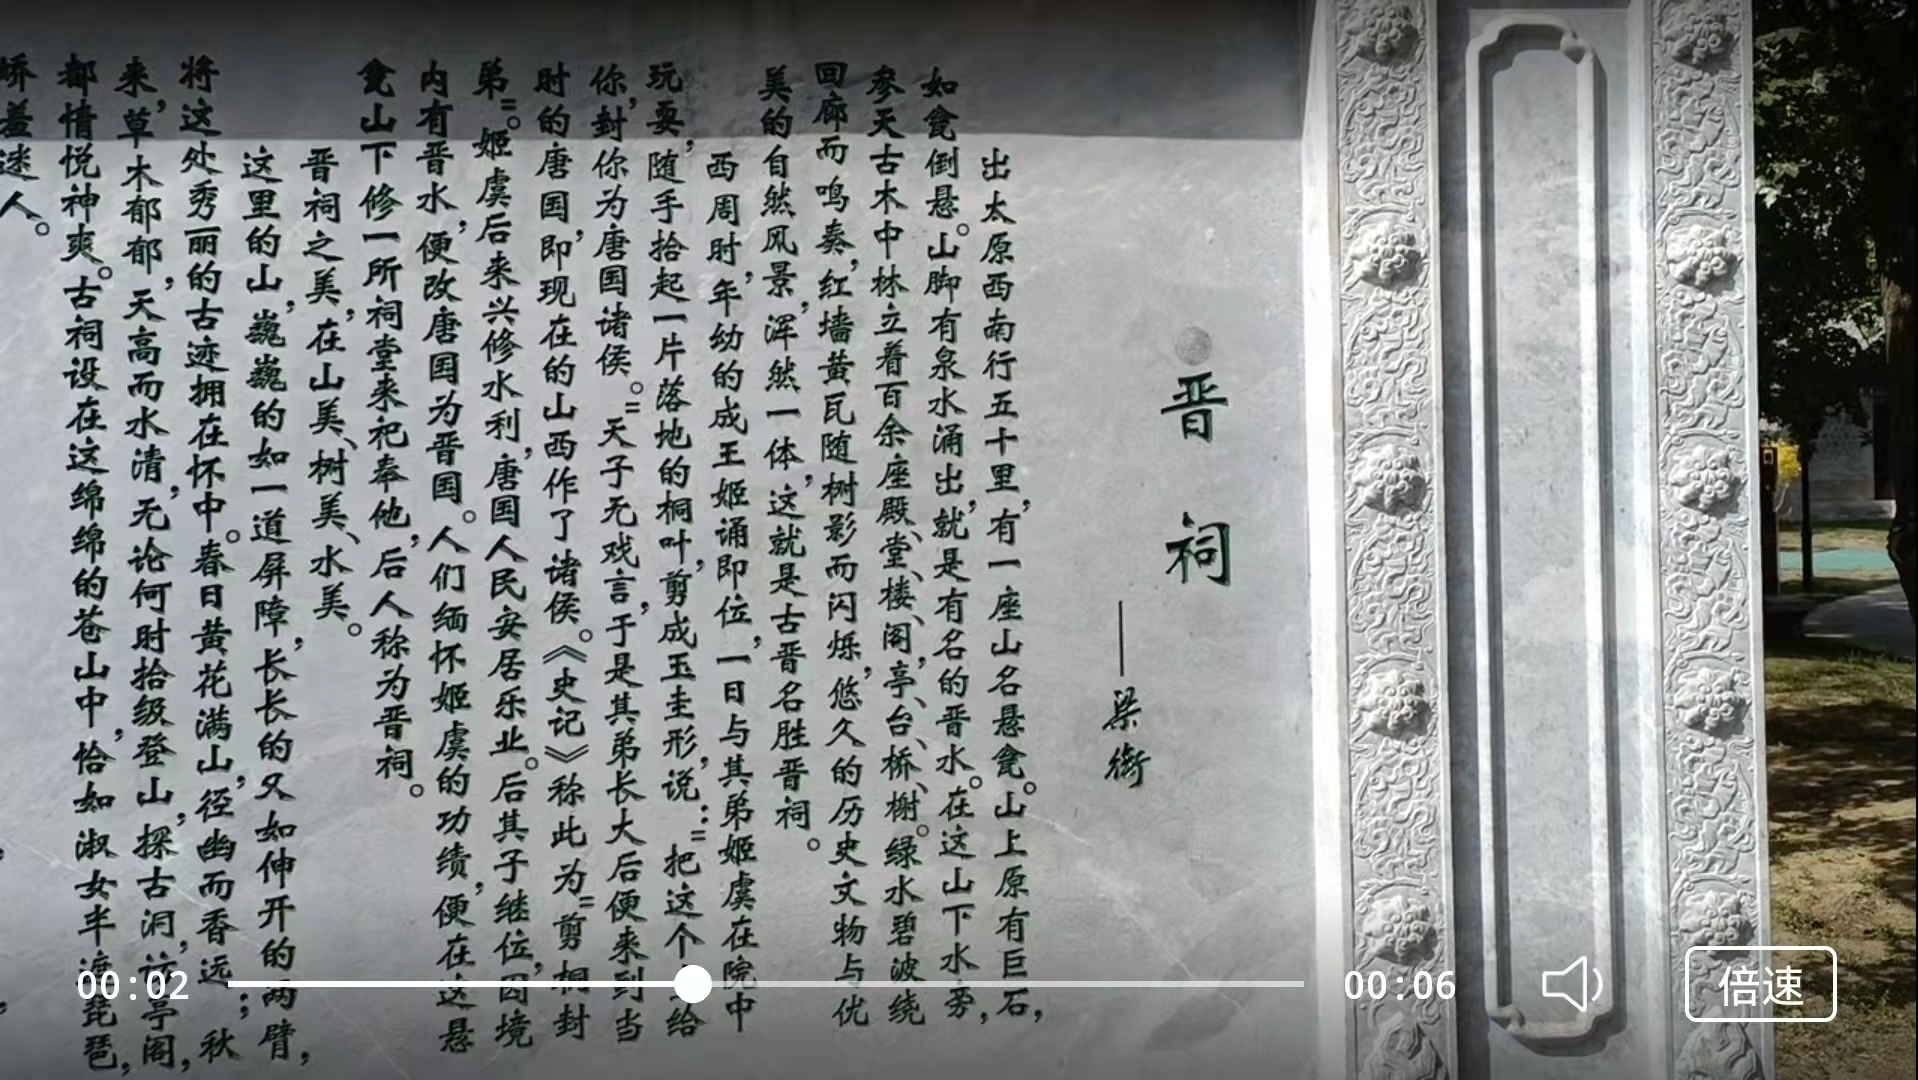 晋祠
——梁衡
出太原西南行五十里,有一座山名悬瓮。山上原有巨石,
如瓮倒悬。山脚有泉水涌出,就是有名的晋水。在这山下水旁,
参天古木中林立着百余座殿、堂、楼、阁、亭、台、桥、榭。绿水碧波绕
回廊而鸣奏,红墙黄瓦随树影而闪烁,悠久的历史文物与优
美的自然风景,浑然一体,这就是古晋名胜晋祠。
西周时,年幼的成王姬诵即位,一日与其弟姬虞在院中
玩耍,随手拾起一片落地的桐叶,剪成玉圭形,说:"把这个给
你,封你为唐国诸侯。"天子无戏言,于是其弟长大后便来到当
时的唐国,即现在的山西作了诸侯。《史记》称此为"剪桐封
弟"。姬虞后来兴修水利,唐国人民安居乐业。后其子继位,因境
内有晋水,便改唐国为晋国。人们缅怀姬虞的功绩,便在这悬
瓮山下修一所祠堂来祀奉他,后人称为晋祠。
晋祠之美,在山美、树美、水美。
这里的山,巍巍的如一道屏障,长长的又如伸开的两臂,
将这处秀丽的古迹拥在怀中。春日黄花满山,径幽而香远;秋
来,草木郁郁,天高而水清,无论何时拾级登山,探古洞,访亭阁,
都情悦神爽。古祠设在这绵绵的苍山中,恰如淑女半遮琵琶,
娇羞迷人。
00:02
00:06
倍速